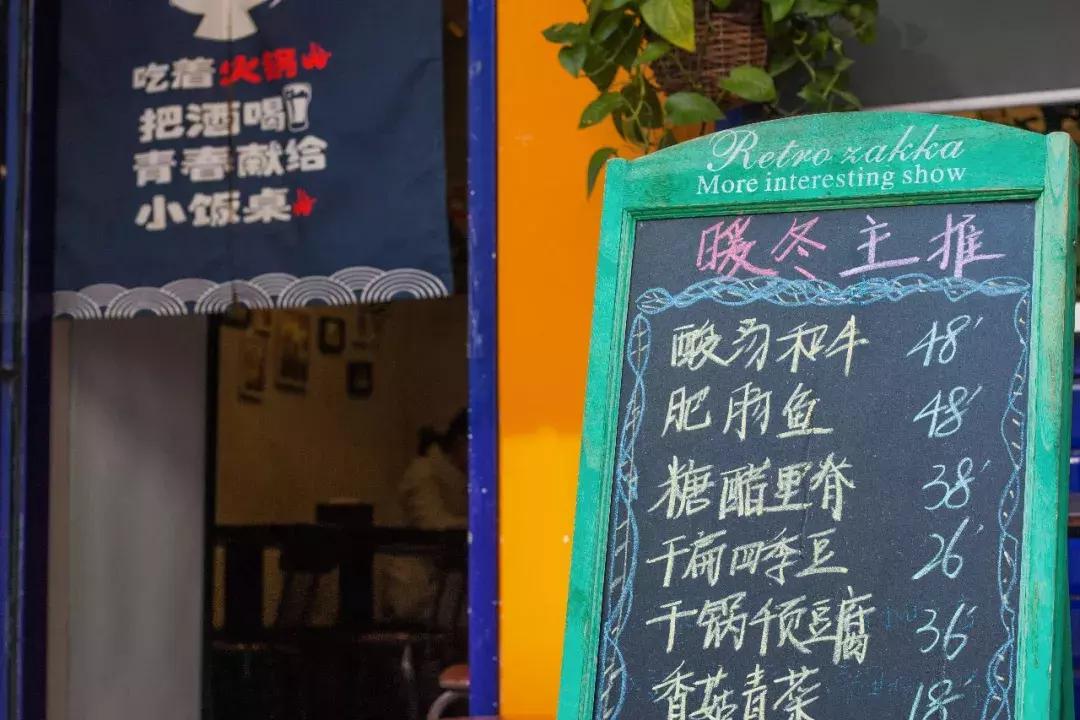 吃着火锅
把酒喝
青春献给
小饭桌
Retro zakka
More interesting show
暖冬主推
酸汤和牛 48
肥肠鱼 48
糖醋里脊 38
干扁四季豆 26
干锅千页豆腐 36
香菇青菜 18